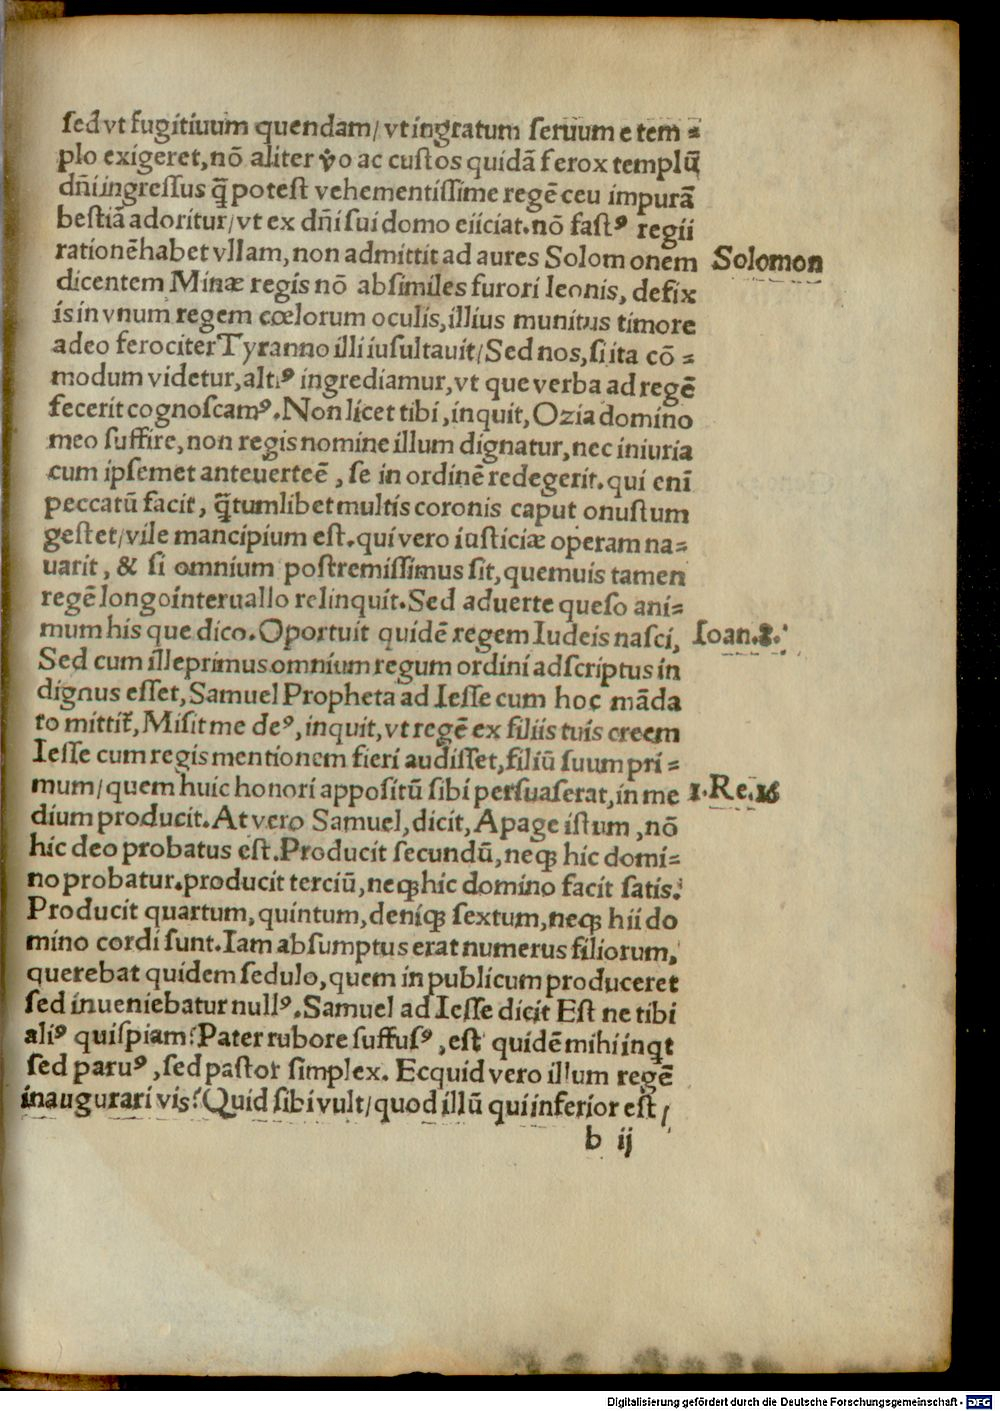 sed vt fugitiuum quendam/ vt ingratum seruum e tem⸗
plo exigeret, nō aliter v̊o ac custos quidā ferox templū
dn̄i ingressus q̄ potest vehementissime regē ceu impurā
bestiā adoritur/ vt ex dn̄i sui domo eiiciat. nō fastꝰ regii
rationē habet vllam, non admittit ad aures Solomonem
Solomon
dicentem Minæ regis nō absimiles furori leonis, defix
is in vnum regem cœlorum oculis, illius munitus timore
adeo ferociter Tyranno illi iusultauit/ Sed nos, si ita cō⸗
modum videtur, altiꝰ ingrediamur, vt que verba ad regē
fecerit cognoscamꝰ. Non licet tibi, inquit, Ozia domino
meo suffire, non regis nomine illum dignatur, nec iniuria
cum ipsemet anteuerteē, se in ordinē redegerit. qui enī
peccatū facit, q̄tumlibet multis coronis caput onustum
gestet/ vile mancipium est. qui vero iusticiæ operam na⸗
uarit, & si omnium postremissimus sit, quemuis tamen
regē longo interuallo relinquit. Sed aduerte queso ani⸗
mum his que dico. Oportuit quidē regem Iudeis nasci,
Ioan. 8.
Sed cum ille primus omnium regum ordini adscriptus in
dignus esset, Samuel Propheta ad Iesse cum hoc māda
to mittit̄, Misit me deꝰ, inquit, vt regē ex filiis tuis creem
Iesse cum regis mentionem fieri audisset, filiū suum pri⸗
mum/ quem huic honori appositū sibi persuaserat, in me
1. Re. 16
dium producit. At vero Samuel, dicit, Apage istum, nō
hic deo probatus est. Producit secundū, neqꝫ hic domi⸗
no probatur. producit terciū, neqꝫ hic domino facit satis.
Producit quartum, quintum, deniqꝫ sextum, neqꝫ hii do
mino cordi sunt. Iam absumptus erat numerus filiorum,
querebat quidem sedulo, quem in publicum produceret
sed inueniebatur nullꝰ. Samuel ad Iesse dicit Est ne tibi
aliꝰ quispiam? Pater rubore suffusꝰ, est quidē mihi inqt
sed paruꝰ, sed pastor simplex. Ecquid vero illum regē
inaugurari vis? Quid sibi vult/ quod illū qui inferior est/
b ij
Digitalisierung gefördert durch die Deutsche Forschungsgemeinschaft - DFG